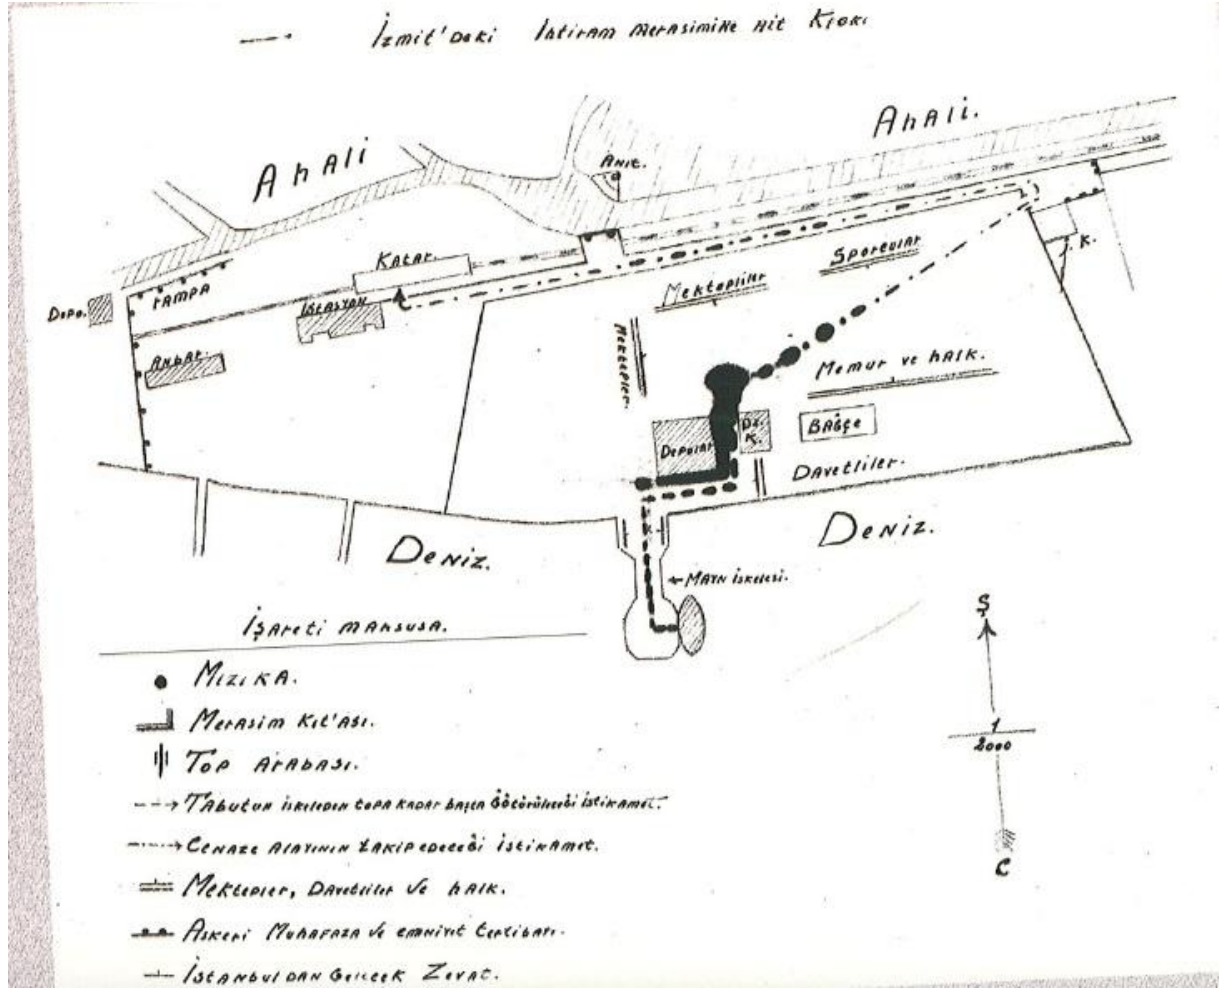 İzmit'deki İhtiram Merasimine Ait Kroki
Ahali.
Ahali
Anıt.
Katar.
Sporcular
J. K.
RAMPA
İstasyon
Mektepliler
Depo.
Mektepler.
Anbar.
Memur ve halk.
Bağçe
Depolar
Dz. K.
Davetliler.
Deniz.
Deniz.
MAYN İskelesi.
Ş
1
2000
C
İşareti mahsusa.
Mızıka.
Merasim Kıt'ası.
Top Arabası.
Tabutun iskeleden topa kadar başta götürüleceği istikamet.
Cenaze alayının takip edeceği istikamet.
Mektepler, Davetliler ve halk.
Askeri Muhafaza ve emniyet tertibatı.
İstanbuldan Gelecek Zevat.